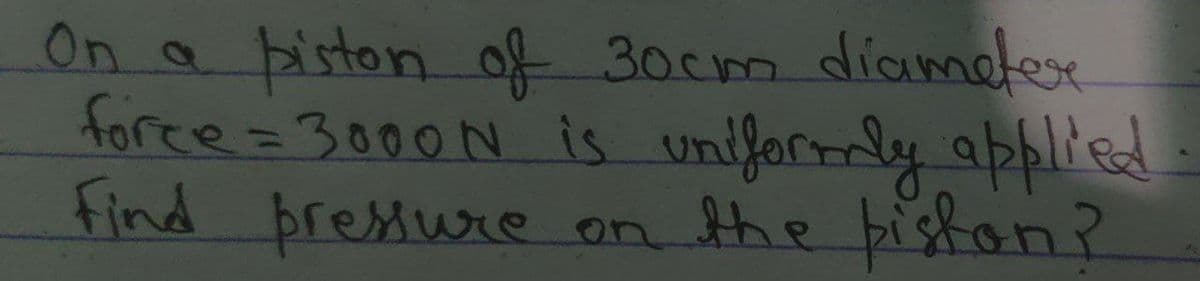 On a piston of 30cm diameter
force = 3000N is uniformly applied.
Find pressure on the piston?